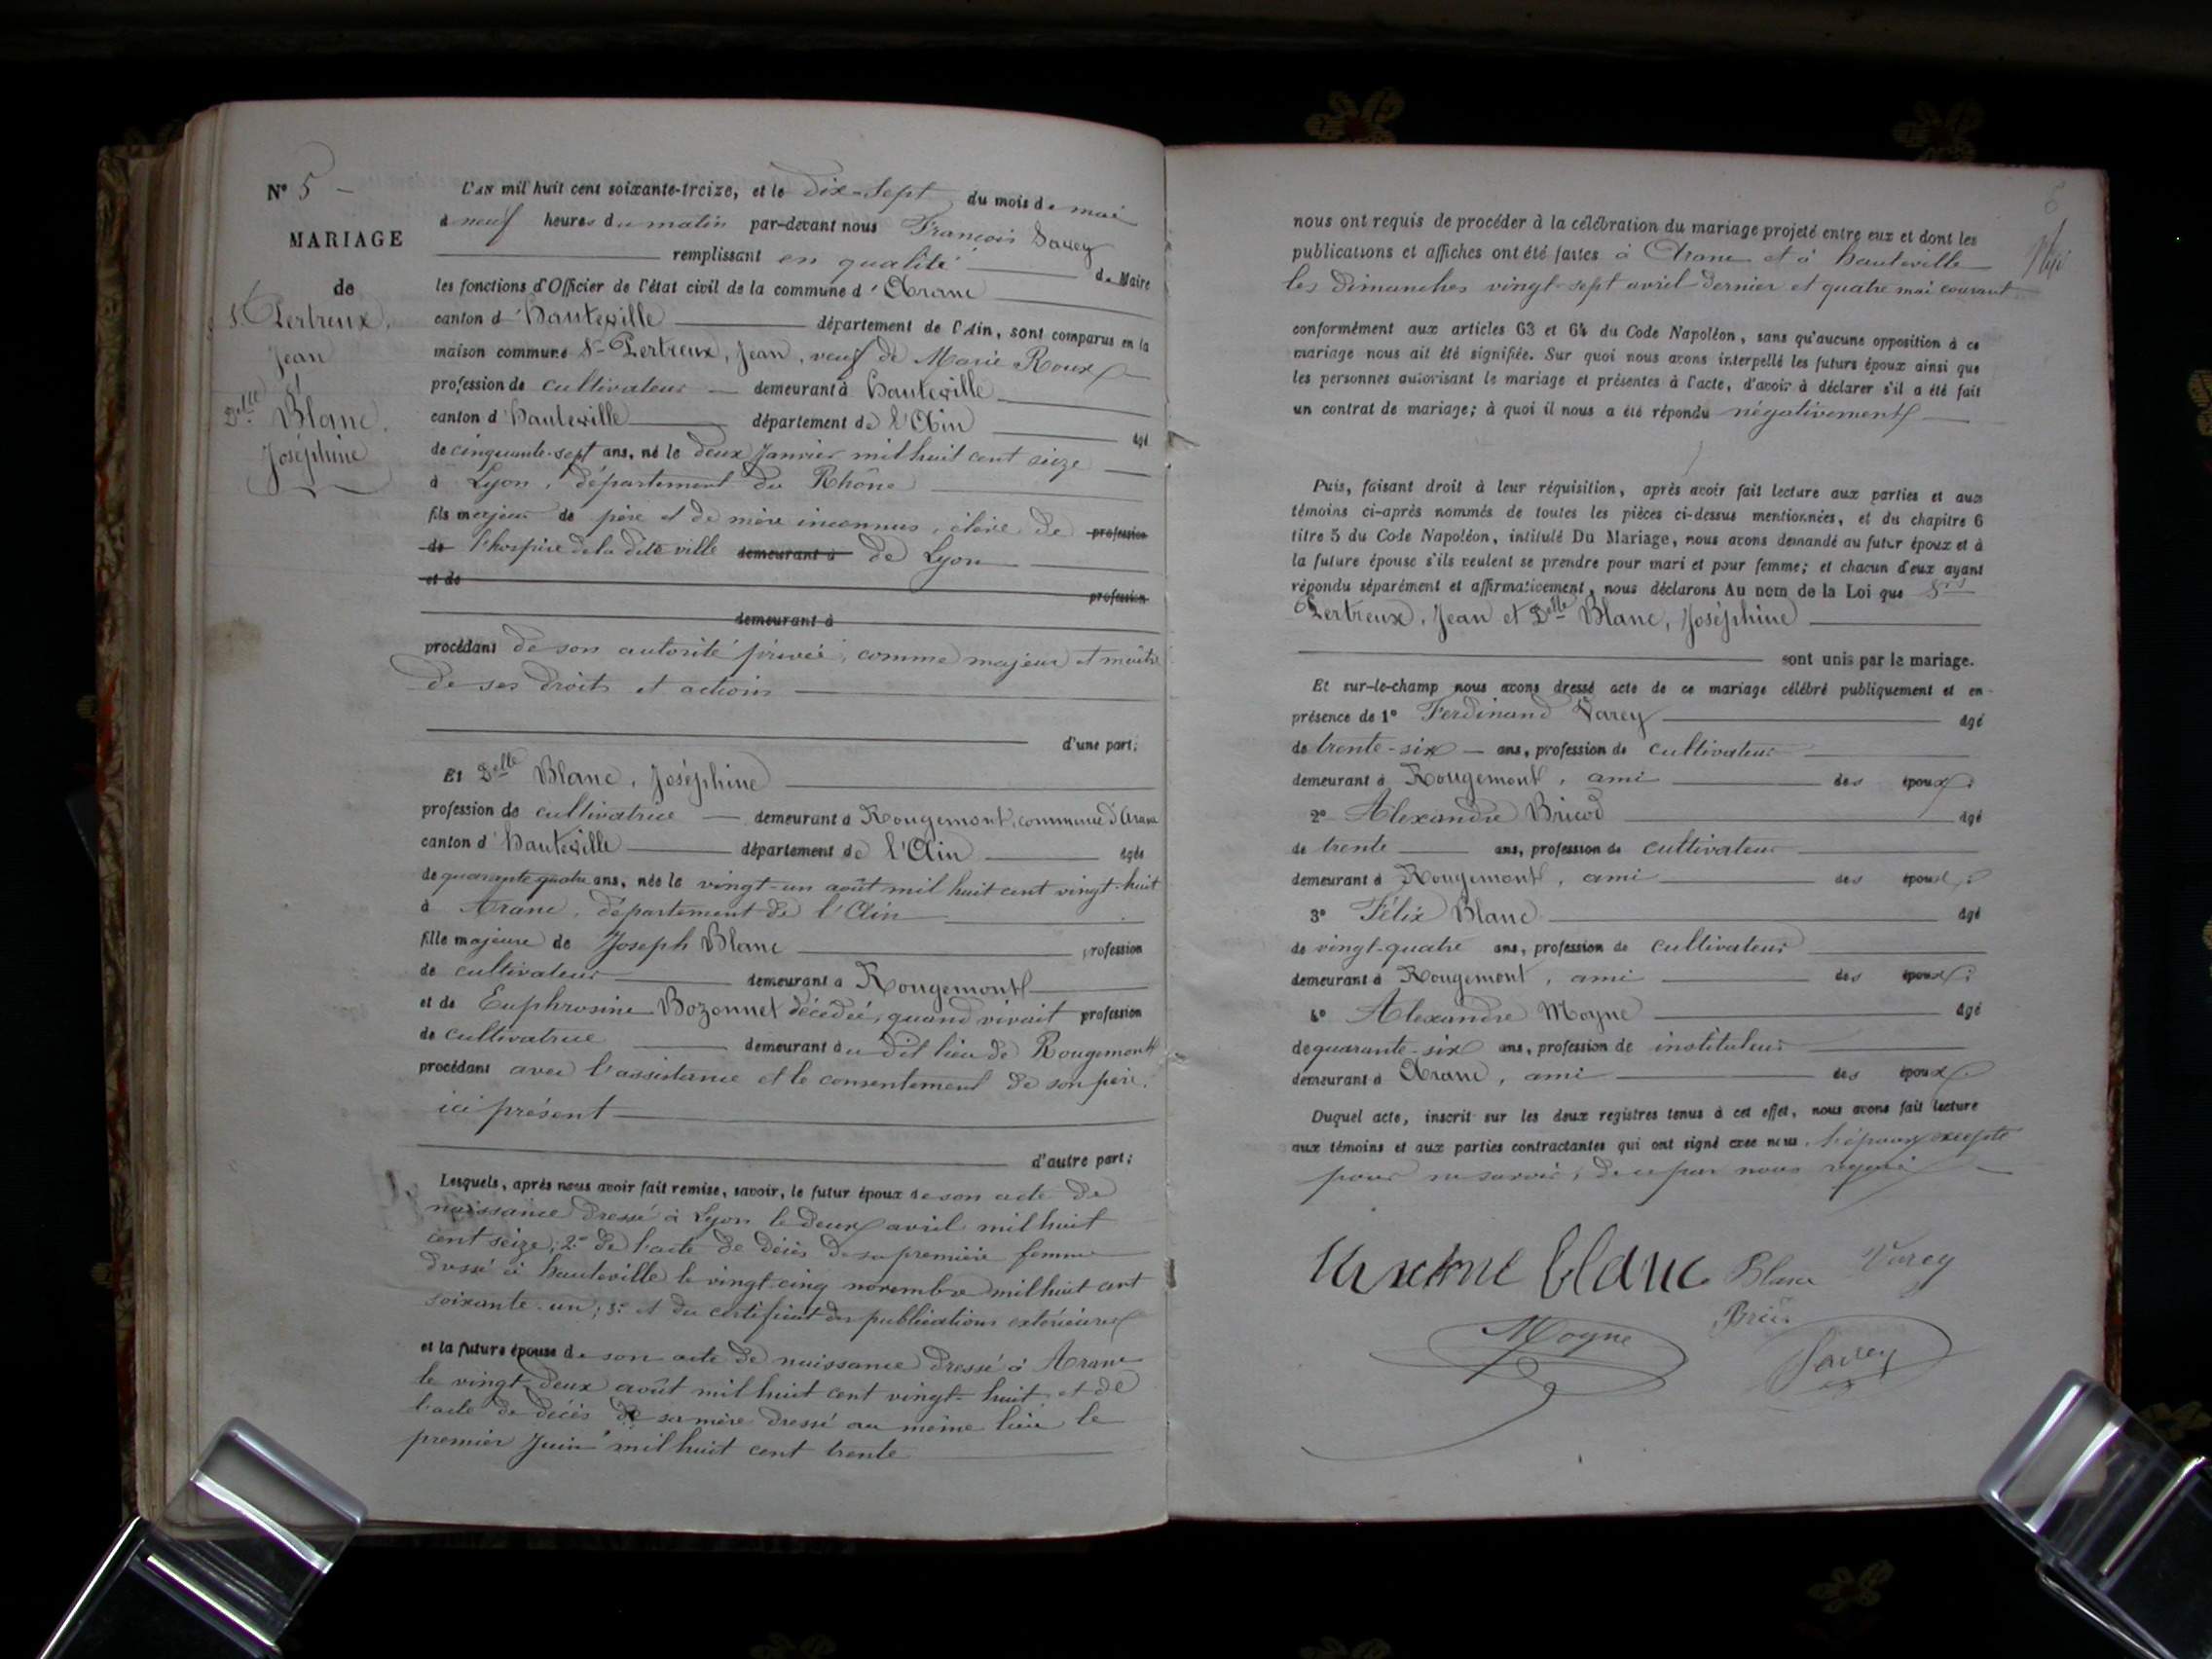 N° 5 -
MARIAGE
de
S. Pertreux,
Jean
et
Delle Blanc,
Joséphine
L'AN mil huit cent soixante-treize, et le dix-sept du mois de mai
à neuf heures du matin par-devant nous François Savey
remplissant en qualité de Maire
les fonctions d'Officier de l'état civil de la commune d'Aranc
canton d'hauteville département de l'Ain, sont comparus en la
maison commune Sr Pertreux, Jean, veuf de Marie Roux
profession de cultivateur demeurant à hauteville
canton d'hauteville département de l'Ain âgé
de cinquante-sept ans, né le deux Janvier mil huit cent seize
à Lyon, département du Rhône
fils majeur de père et de mère inconnus, élève de profession
de l'hospice de la dite ville demeurant à de Lyon
et de
profession
demeurant à
procédant de son autorité privée, comme majeur et maître
de ses droits et actions
d'une part;
Et Delle Blanc, Joséphine
profession de cultivatrice demeurant à Rougemont, commune d'Aranc
canton d'hauteville département de l'Ain âgée
de quarante quatre ans, née le vingt-un août mil huit cent vingt-huit
à Aranc, département de l'Ain
fille majeure de Joseph Blanc profession
de cultivateur demeurant à Rougemont
et de Euphrosine Bozonnet décédée, quand vivait profession
de cultivatrice demeurant au dit lieu de Rougemont
procédant avec l'assistance et le consentement de son père,
ici présent
d'autre part;
Lesquels, après nous avoir fait remise, savoir, le futur époux de son acte de
naissance dressé à Lyon le deux avril mil huit
cent seize; 2° de l'acte de décès de sa première femme
dressé à hauteville le vingt-cinq novembre mil huit cent
soixante-un; 3° et du certificat des publications extérieures
et la future épouse de son acte de naissance dressé à Aranc
le vingt-deux août mil huit cent vingt-huit et de
l'acte de décès de sa mère dressé au même lieu le
premier Juin mil huit cent trente
nous ont requis de procéder à la célébration du mariage projeté entre eux et dont les
publications et affiches ont été faites à Aranc et à hauteville
les Dimanches vingt-sept avril dernier et quatre mai courant
conformément aux articles 63 et 64 du Code Napoléon, sans qu'aucune opposition à ce
mariage nous ait été signifiée. Sur quoi nous avons interpellé les futurs époux ainsi que
les personnes autorisant le mariage et présentes à l'acte, d'avoir à déclarer s'il a été fait
un contrat de mariage; à quoi il nous a été répondu négativement
Puis, faisant droit à leur réquisition, après avoir fait lecture aux parties et aux
témoins ci-après nommés de toutes les pièces ci-dessus mentionnées, et du chapitre 6
titre 5 du Code Napoléon, intitulé Du Mariage, nous avons demandé au futur époux et à
la future épouse s'ils veulent se prendre pour mari et pour femme; et chacun d'eux ayant
répondu séparément et affirmativement, nous déclarons Au nom de la Loi que Srs
Pertreux, Jean et Delle Blanc, Joséphine
sont unis par le mariage.
Et sur-le-champ nous avons dressé acte de ce mariage célébré publiquement et en
présence de 1° Ferdinand Varey âgé
de trente-six ans, profession de cultivateur
demeurant à Rougemont, ami des époux;
2° Alexandre Bricod âgé
de trente ans, profession de cultivateur
demeurant à Rougemont, ami des époux;
3° Félix Blanc âgé
de vingt-quatre ans, profession de cultivateur
demeurant à Rougemont, ami des époux;
4° Alexandre Moyne âgé
de quarante-six ans, profession de instituteur
demeurant à Aranc, ami des époux
Duquel acte, inscrit sur les deux registres tenus à cet effet, nous avons fait lecture
aux témoins et aux parties contractantes qui ont signé avec nous. l'époux excepté
pour ne savoir, de ce par nous requis
blanc Blanc Varey
Moyne Savey